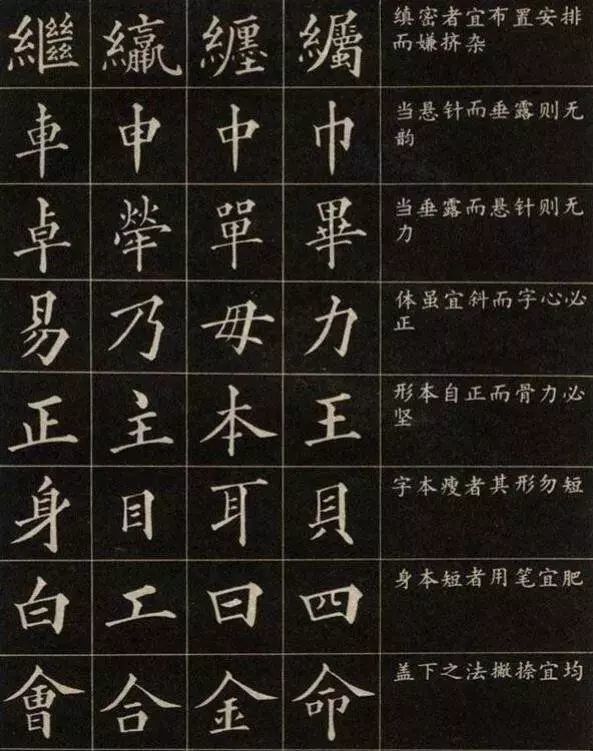 繼 纏
缜密者宜布置安排
而嫌挤杂
車 申 中 巾
当悬针而垂露则无
韵
卓 犖 單 畢
当垂露而悬针则无
力
易 乃 毋 力
体虽宜斜而字心必
正
正 主 本 王
形本自正而骨力必
坚
身 目 耳 貝
字本瘦者其形勿短
白 工 曰 四
身本短者用笔宜肥
會 合 金 命
盖下之法撇捺宜均